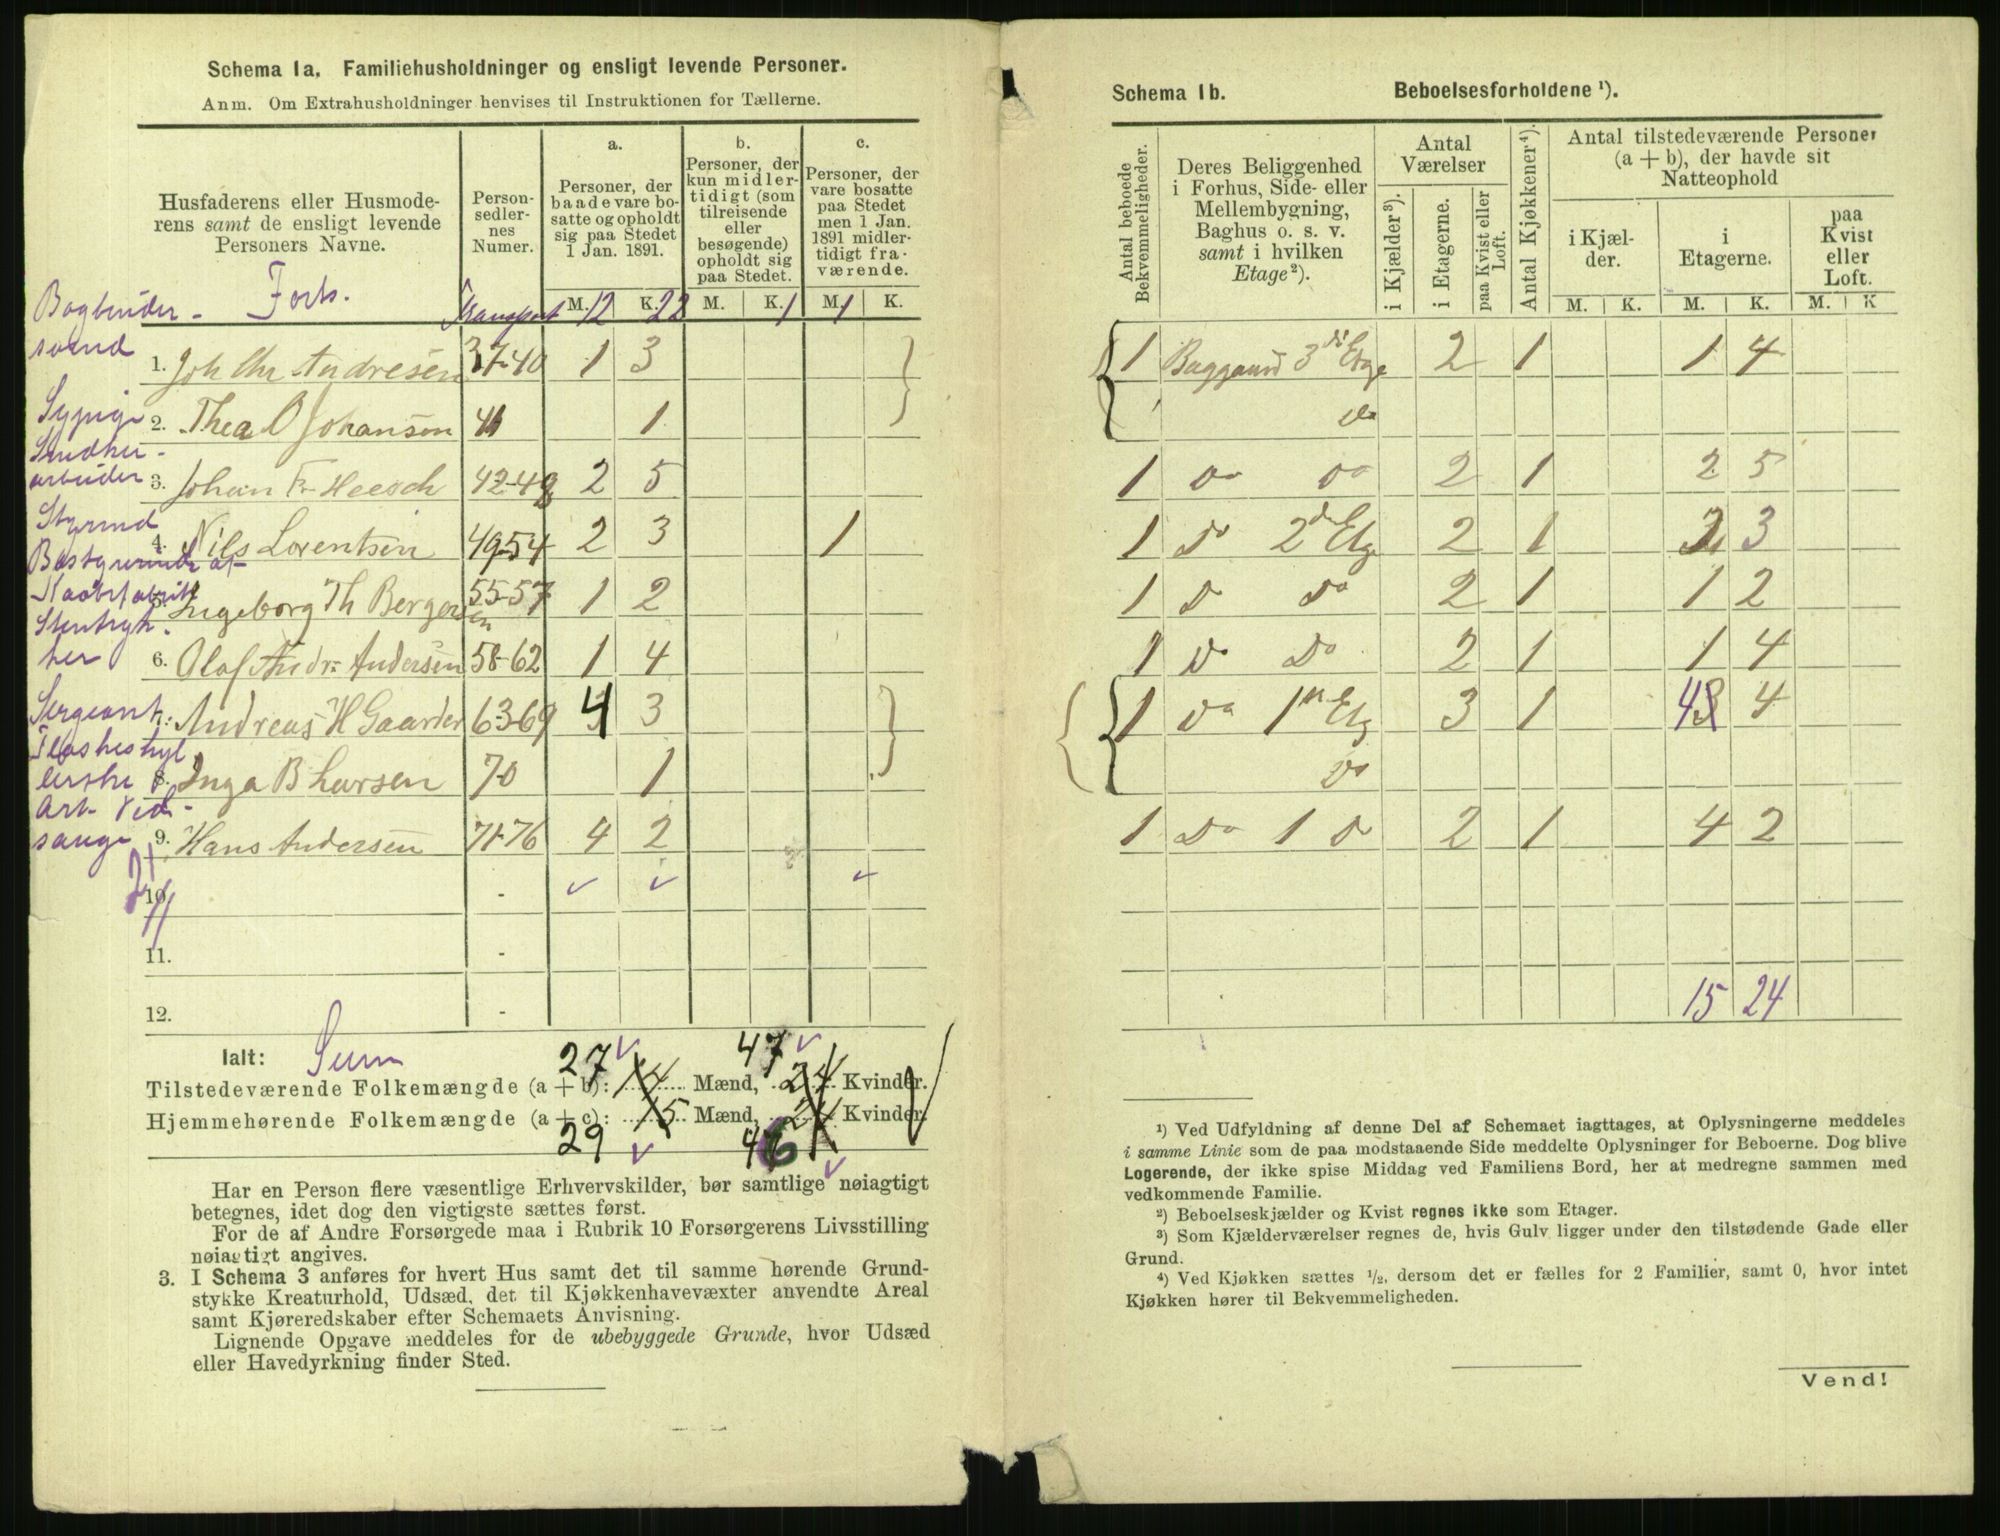 Schema 1a. Familiehusholdninger og ensligt levende Personer.
Anm. Om Extrahusholdninger henvises til Instruktionen for Tællerne.
Husfaderens eller Husmode-
rens samt de ensligt levende
Personers Navne.
Person-
sedler-
nes
Numer.
a.
Personer, der
baade vare bo-
satte og opholdt
sig paa Stedet
1 Jan. 1891.
b.
Personer, der
kun midler-
tidigt (som
tilreisende
eller
besøgende)
opholdt sig
paa Stedet.
c.
Personer, der
vare bosatte
paa Stedet
men 1 Jan.
1891 midler-
tidigt fra-
værende.
Forts. Transport M. 12 K. 22 M. K. 1 M. 1 K.
Bogbinder-
svend
1. Joh Chr Andresen 37-40 1 3
Sypige
2. Thea O Johansen 41 1
arbeider
3. Johan Fr Heesch 42-48 2 5
Styrmd
4. Nils Lorentsen 49-54 2 3 1
Bestyrerinde af
5. Ingeborg Th Bergersen 55-57 1 2
Stentryk-
ker
6. Olaf Andr. Andersen 58-62 1 4
Sergeant
7. Andreas H Gaarder 63-69 4 3
Flaskeskyl
lerske
8. Inga B Larsen 70 1
Arb. Ved-
sauge
9. Hans Andersen 71-76 4 2
10. -
11. -
12. -
Ialt: Sum
27 47
Tilstedeværende Folkemængde (a + b): 14 Mænd, 24 Kvinder.
Hjemmehørende Folkemængde (a + c): 15 Mænd, 24 Kvinder.
29 46
Har en Person flere væsentlige Erhvervskilder, bør samtlige nøiagtigt
betegnes, idet dog den vigtigste sættes først.
For de af Andre Forsørgede maa i Rubrik 10 Forsørgerens Livsstilling
nøiagtigt angives.
3. I Schema 3 anføres for hvert Hus samt det til samme hørende Grund-
stykke Kreaturhold, Udsæd, det til Kjøkkenhavevæxter anvendte Areal
samt Kjøreredskaber efter Schemaets Anvisning.
Lignende Opgave meddeles for de ubebyggede Grunde, hvor Udsæd
eller Havedyrkning finder Sted.
Schema 1b. Beboelsesforholdene ¹).
Antal beboede
Bekvemmeligheder.
Deres Beliggenhed
i Forhus, Side- eller
Mellembygning,
Baghus o. s. v.
samt i hvilken
Etage²).
Antal
Værelser
i Kjælder³).
i Etagerne.
paa Kvist eller
Loft.
Antal Kjøkkener⁴).
Antal tilstedeværende Personer
(a + b), der havde sit
Natteophold
i Kjæl-
der.
i
Etagerne.
paa
Kvist
eller
Loft.
M. K. M. K. M. K
1 Baggaard 3die Etge 2 1 1 4
do
1 do do 2 1 2 5
1 do 2d Etg 2 1 3
1 do do 2 1 1 2
1 do do 2 1 1 4
1 do 1ste Etg 3 1 4 4
do
1 do 1 do 2 1 4 2
15 24
¹) Ved Udfyldning af denne Del af Schemaet iagttages, at Oplysningerne meddeles
i samme Linie som de paa modstaaende Side meddelte Oplysninger for Beboerne. Dog blive
Logerende, der ikke spise Middag ved Familiens Bord, her at medregne sammen med
vedkommende Familie.
²) Beboelseskjælder og Kvist regnes ikke som Etager.
³) Som Kjælderværelser regnes de, hvis Gulv ligger under den tilstødende Gade eller
Grund.
⁴) Ved Kjøkken sættes ¹/₂, dersom det er fælles for 2 Familier, samt 0, hvor intet
Kjøkken hører til Bekvemmeligheden.
Vend!